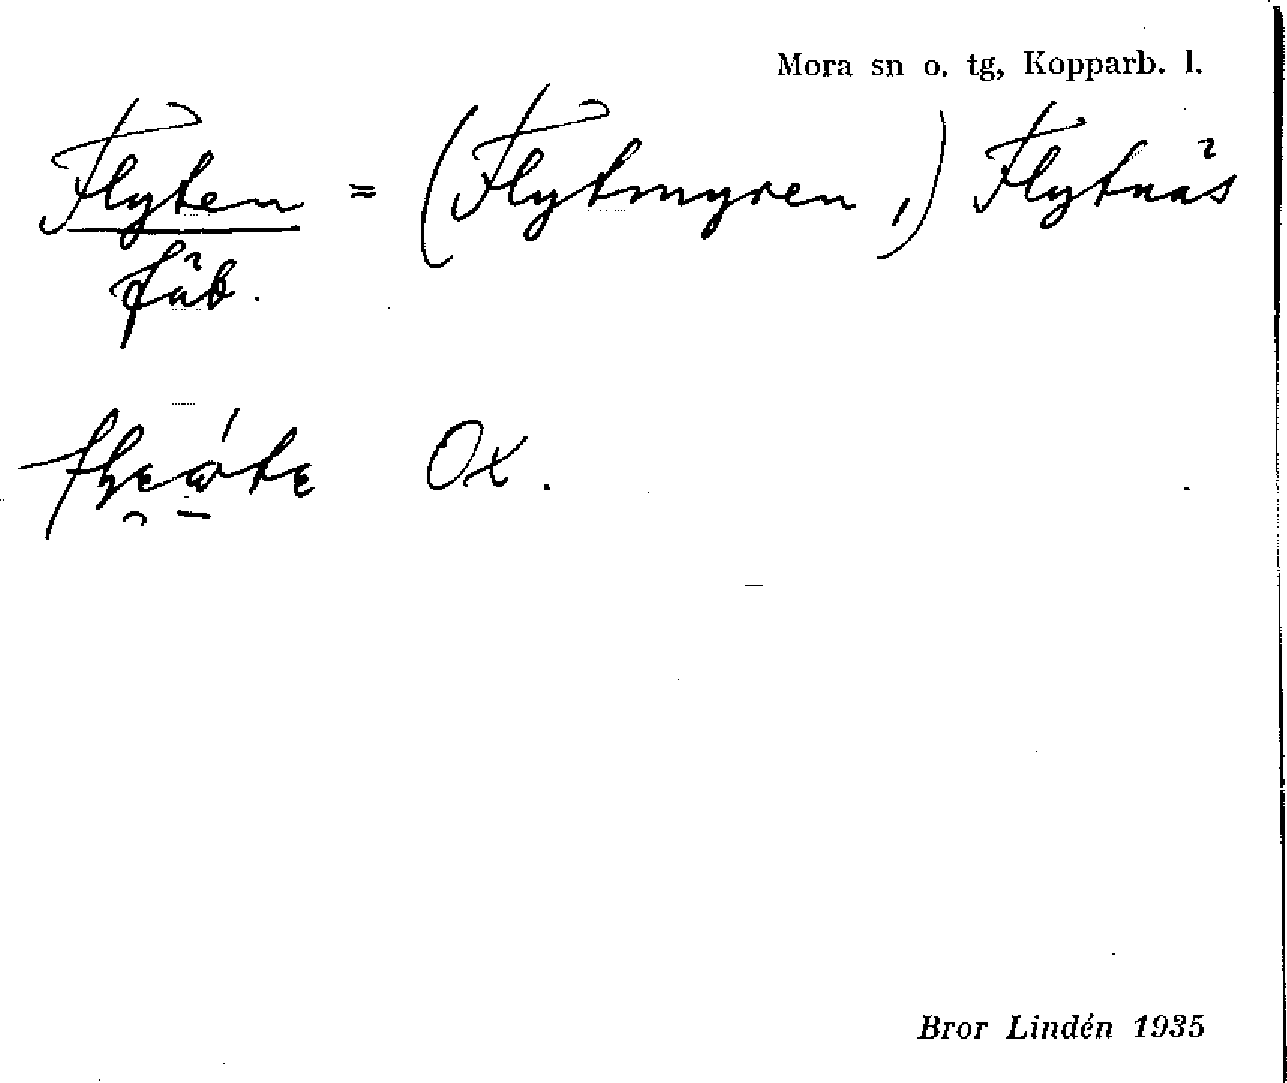 Mora sn o. tg, Kopparb. l.
Flyten = (Flytmyren,) Flytnäs
fäb.
Ox.
Bror Lindén 1935